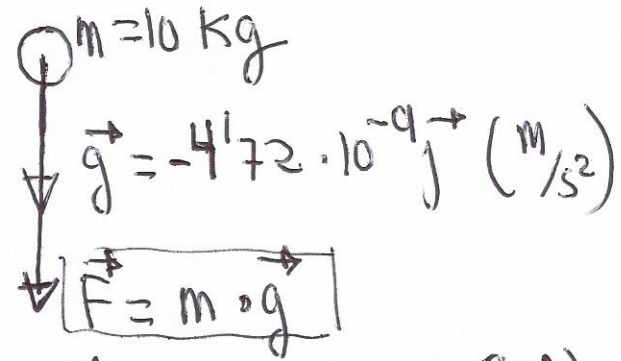 m = 10 kg
g⃗ = -4'72 · 10⁻⁹ j⃗ (m/s²)
F⃗ = m · g⃗